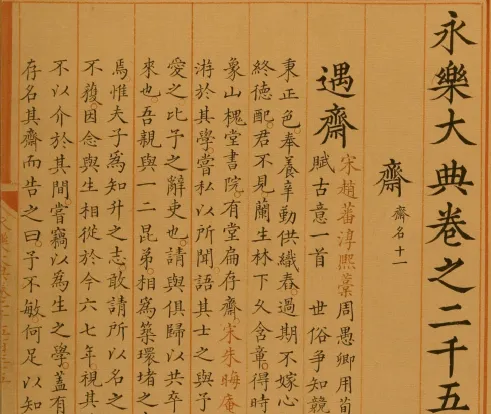 永樂大典卷之二千五
齋 齋名十一
遇齋
宋趙蕃淳熙藁周愚卿用荀
賦古意一首 世俗爭知競
秉正色奉養辛勤供織舂過期不嫁心
終德配君不見蘭生林下久含章得時
象山槐堂書院有堂扁存齋宋朱晦庵
游於其學嘗私以所聞語其士之與予
愛之比予之辭吏也請與俱歸以共卒
來也吾親與一二昆弟相為築環堵之
焉惟夫子為知升之志敢請所以名之
不獲因念與生相從於今六七年視其
不以介於其間嘗竊以為生之學蓋有
存名其齋而告之曰予不敏何足以知